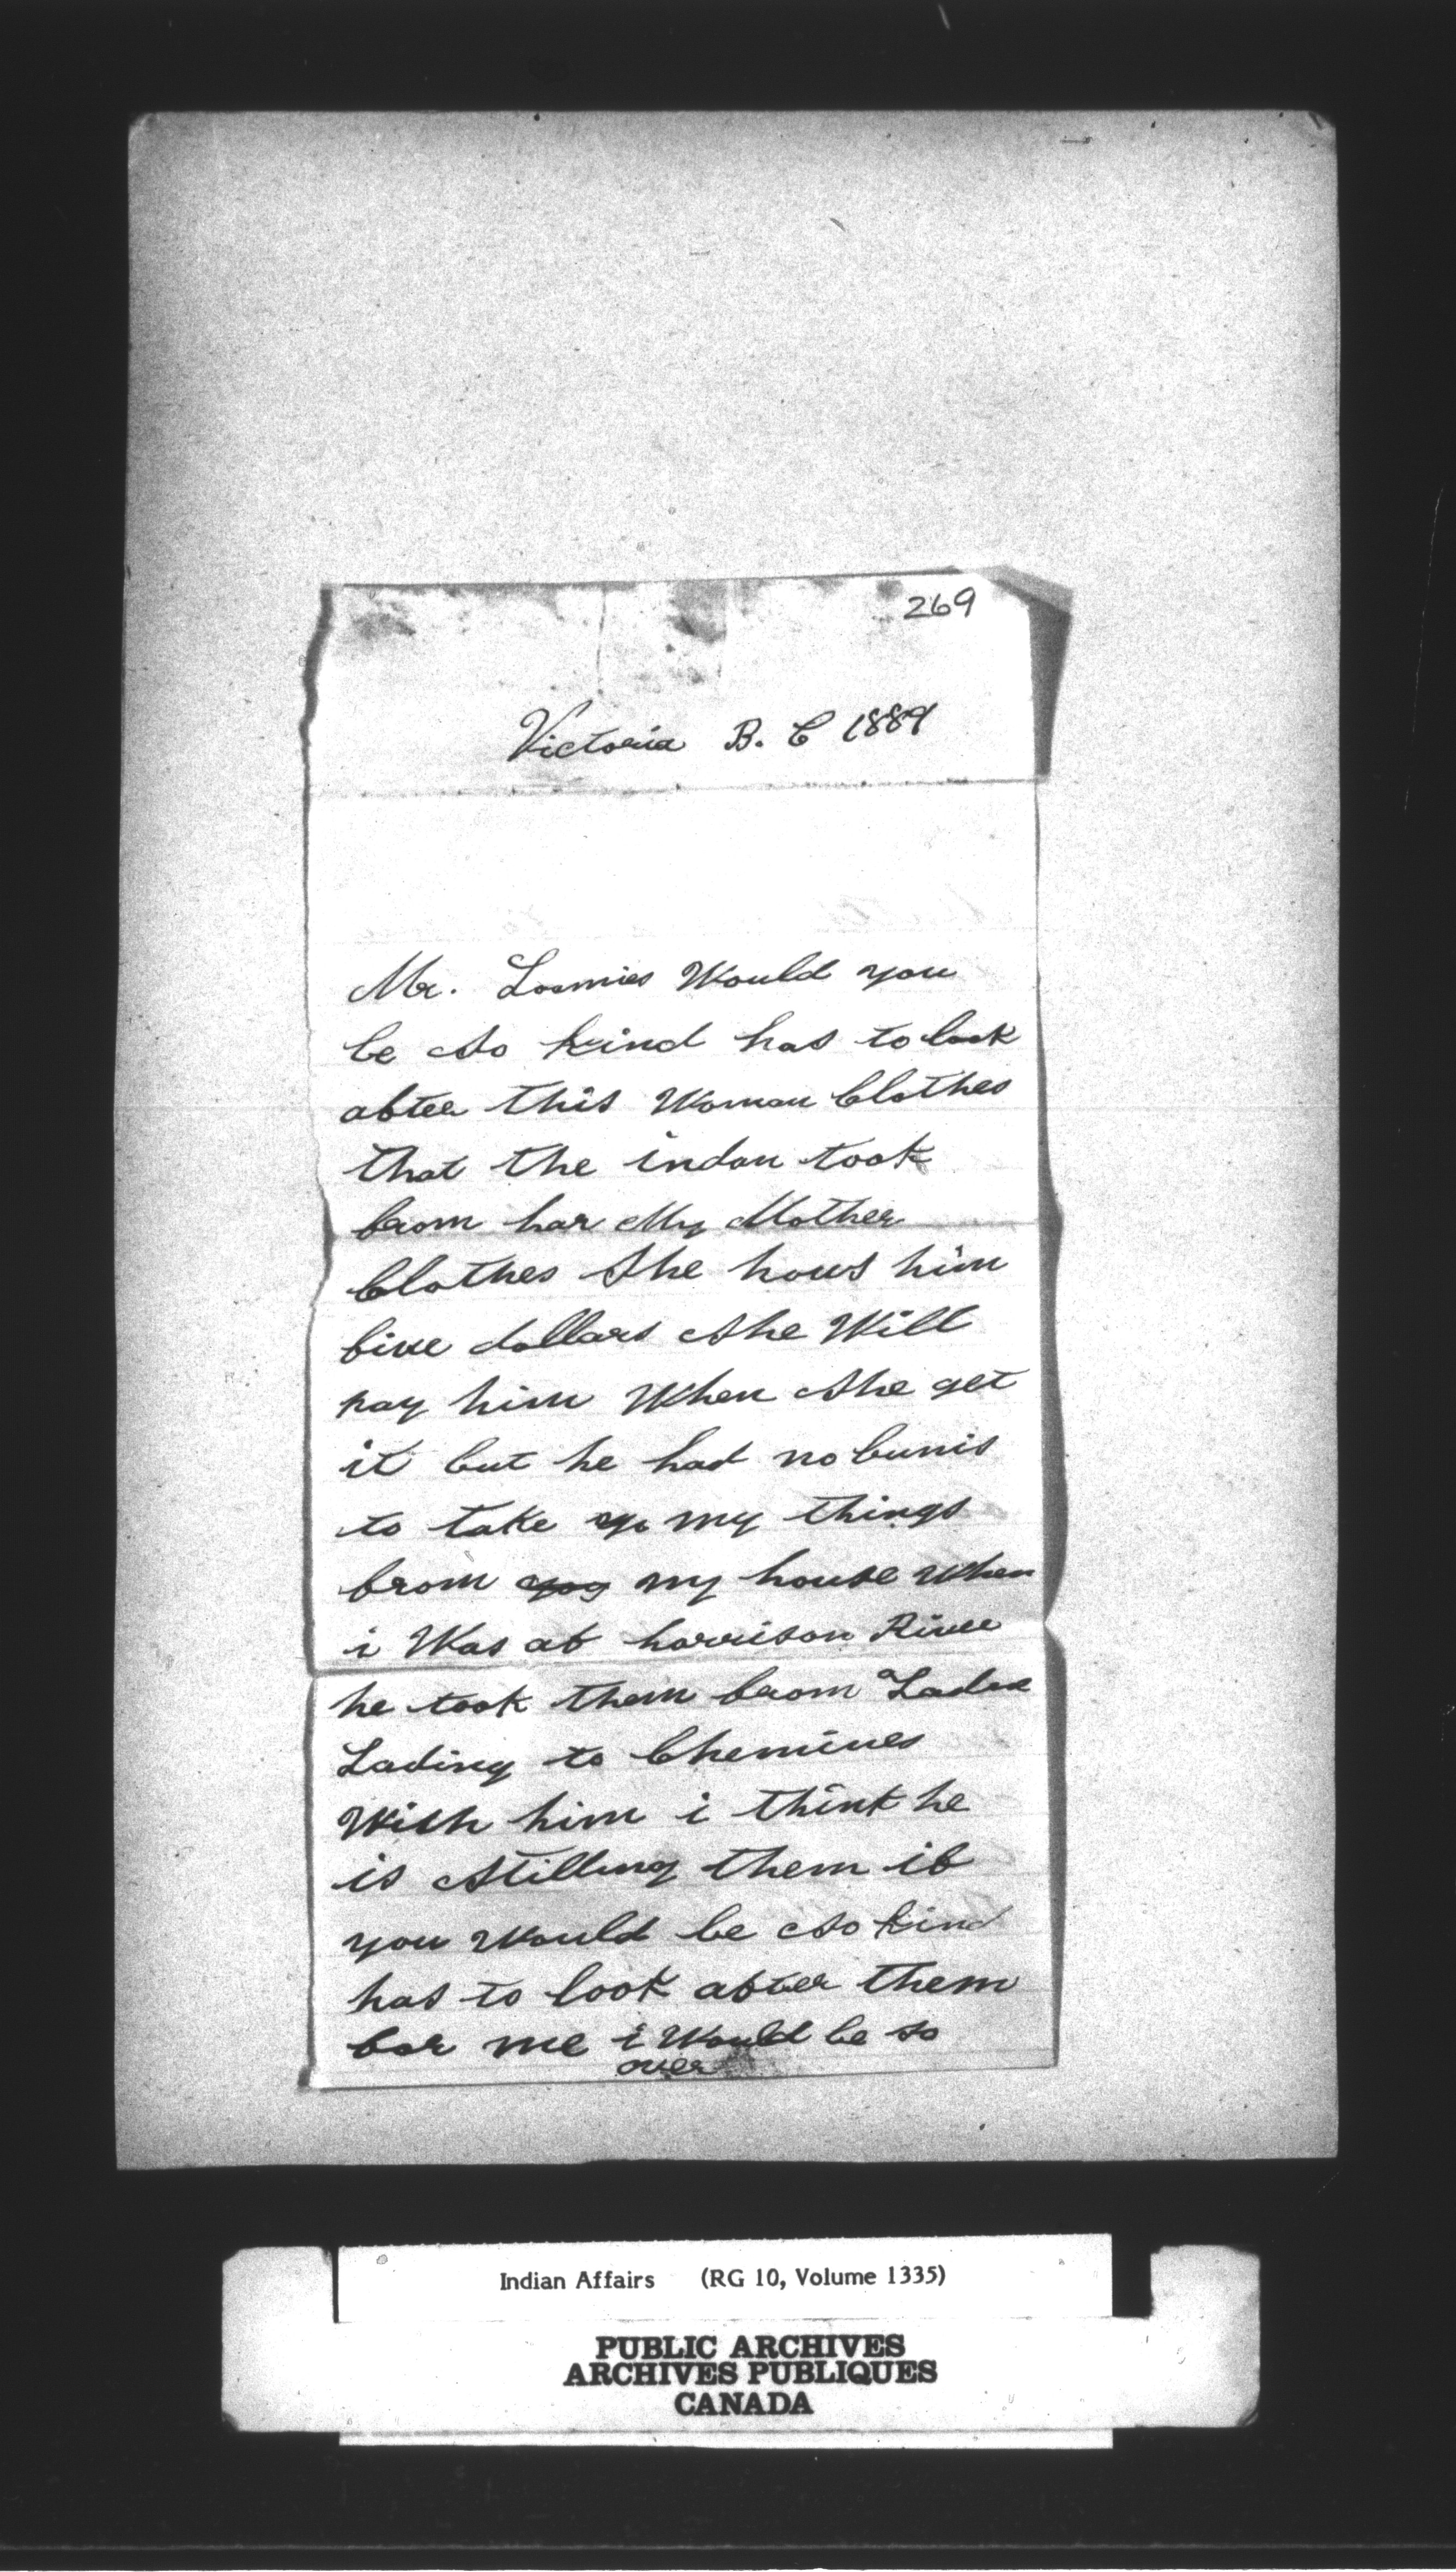 269
Victoria B. C 1889
Mr. Loomies Would you
be so kind has to look
after this Woman Clothes
that the indan took
from har My Mother
Clothes She hows him
five dollars she Will
pay him When she get
it but he had no bunis
to take my things
from my house When
i Was at harrison River
he took them from Lader
Lading to Chemines
With him i think he
is stilling them if
you Would be so kind
has to look after them
for me i Would be so
over
Indian Affairs (RG 10, Volume 1335)
PUBLIC ARCHIVES
ARCHIVES PUBLIQUES
CANADA